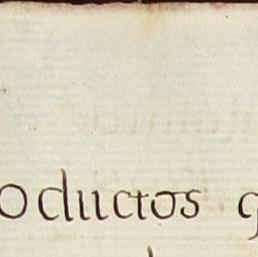 oductos q